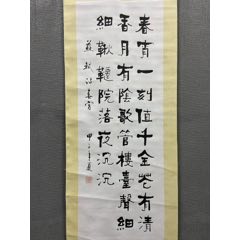 春宵一刻值千金花有清
香月有陰歌管樓臺聲細
細鞦韆院落夜沉沉
蘇軾詩春宵